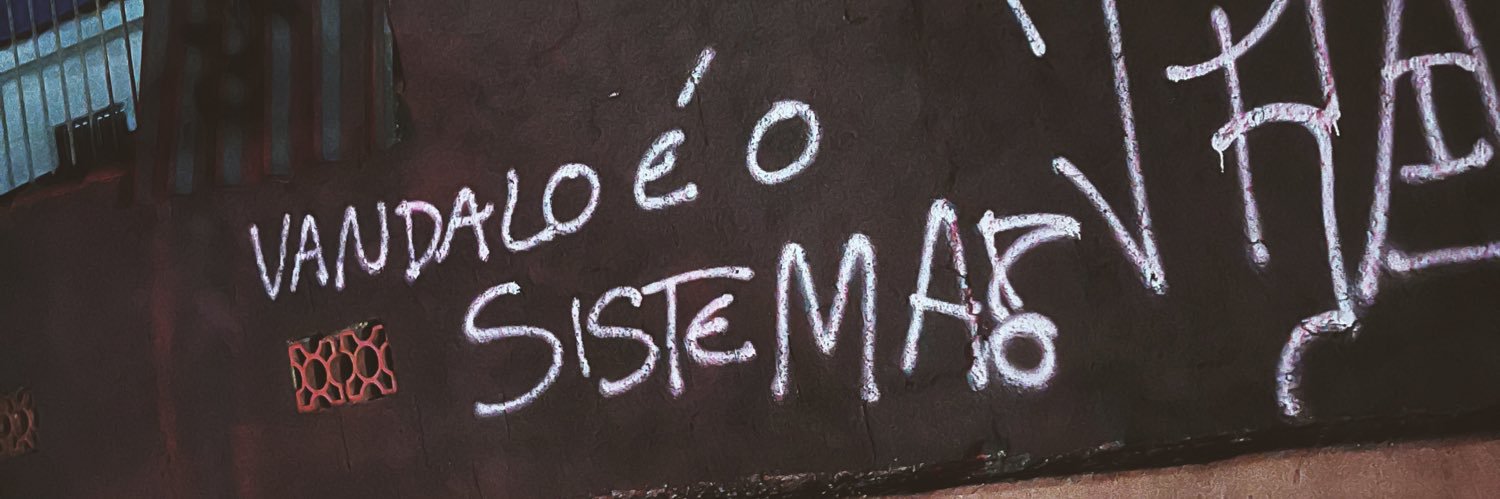 VANDALO É O
SISTEMA